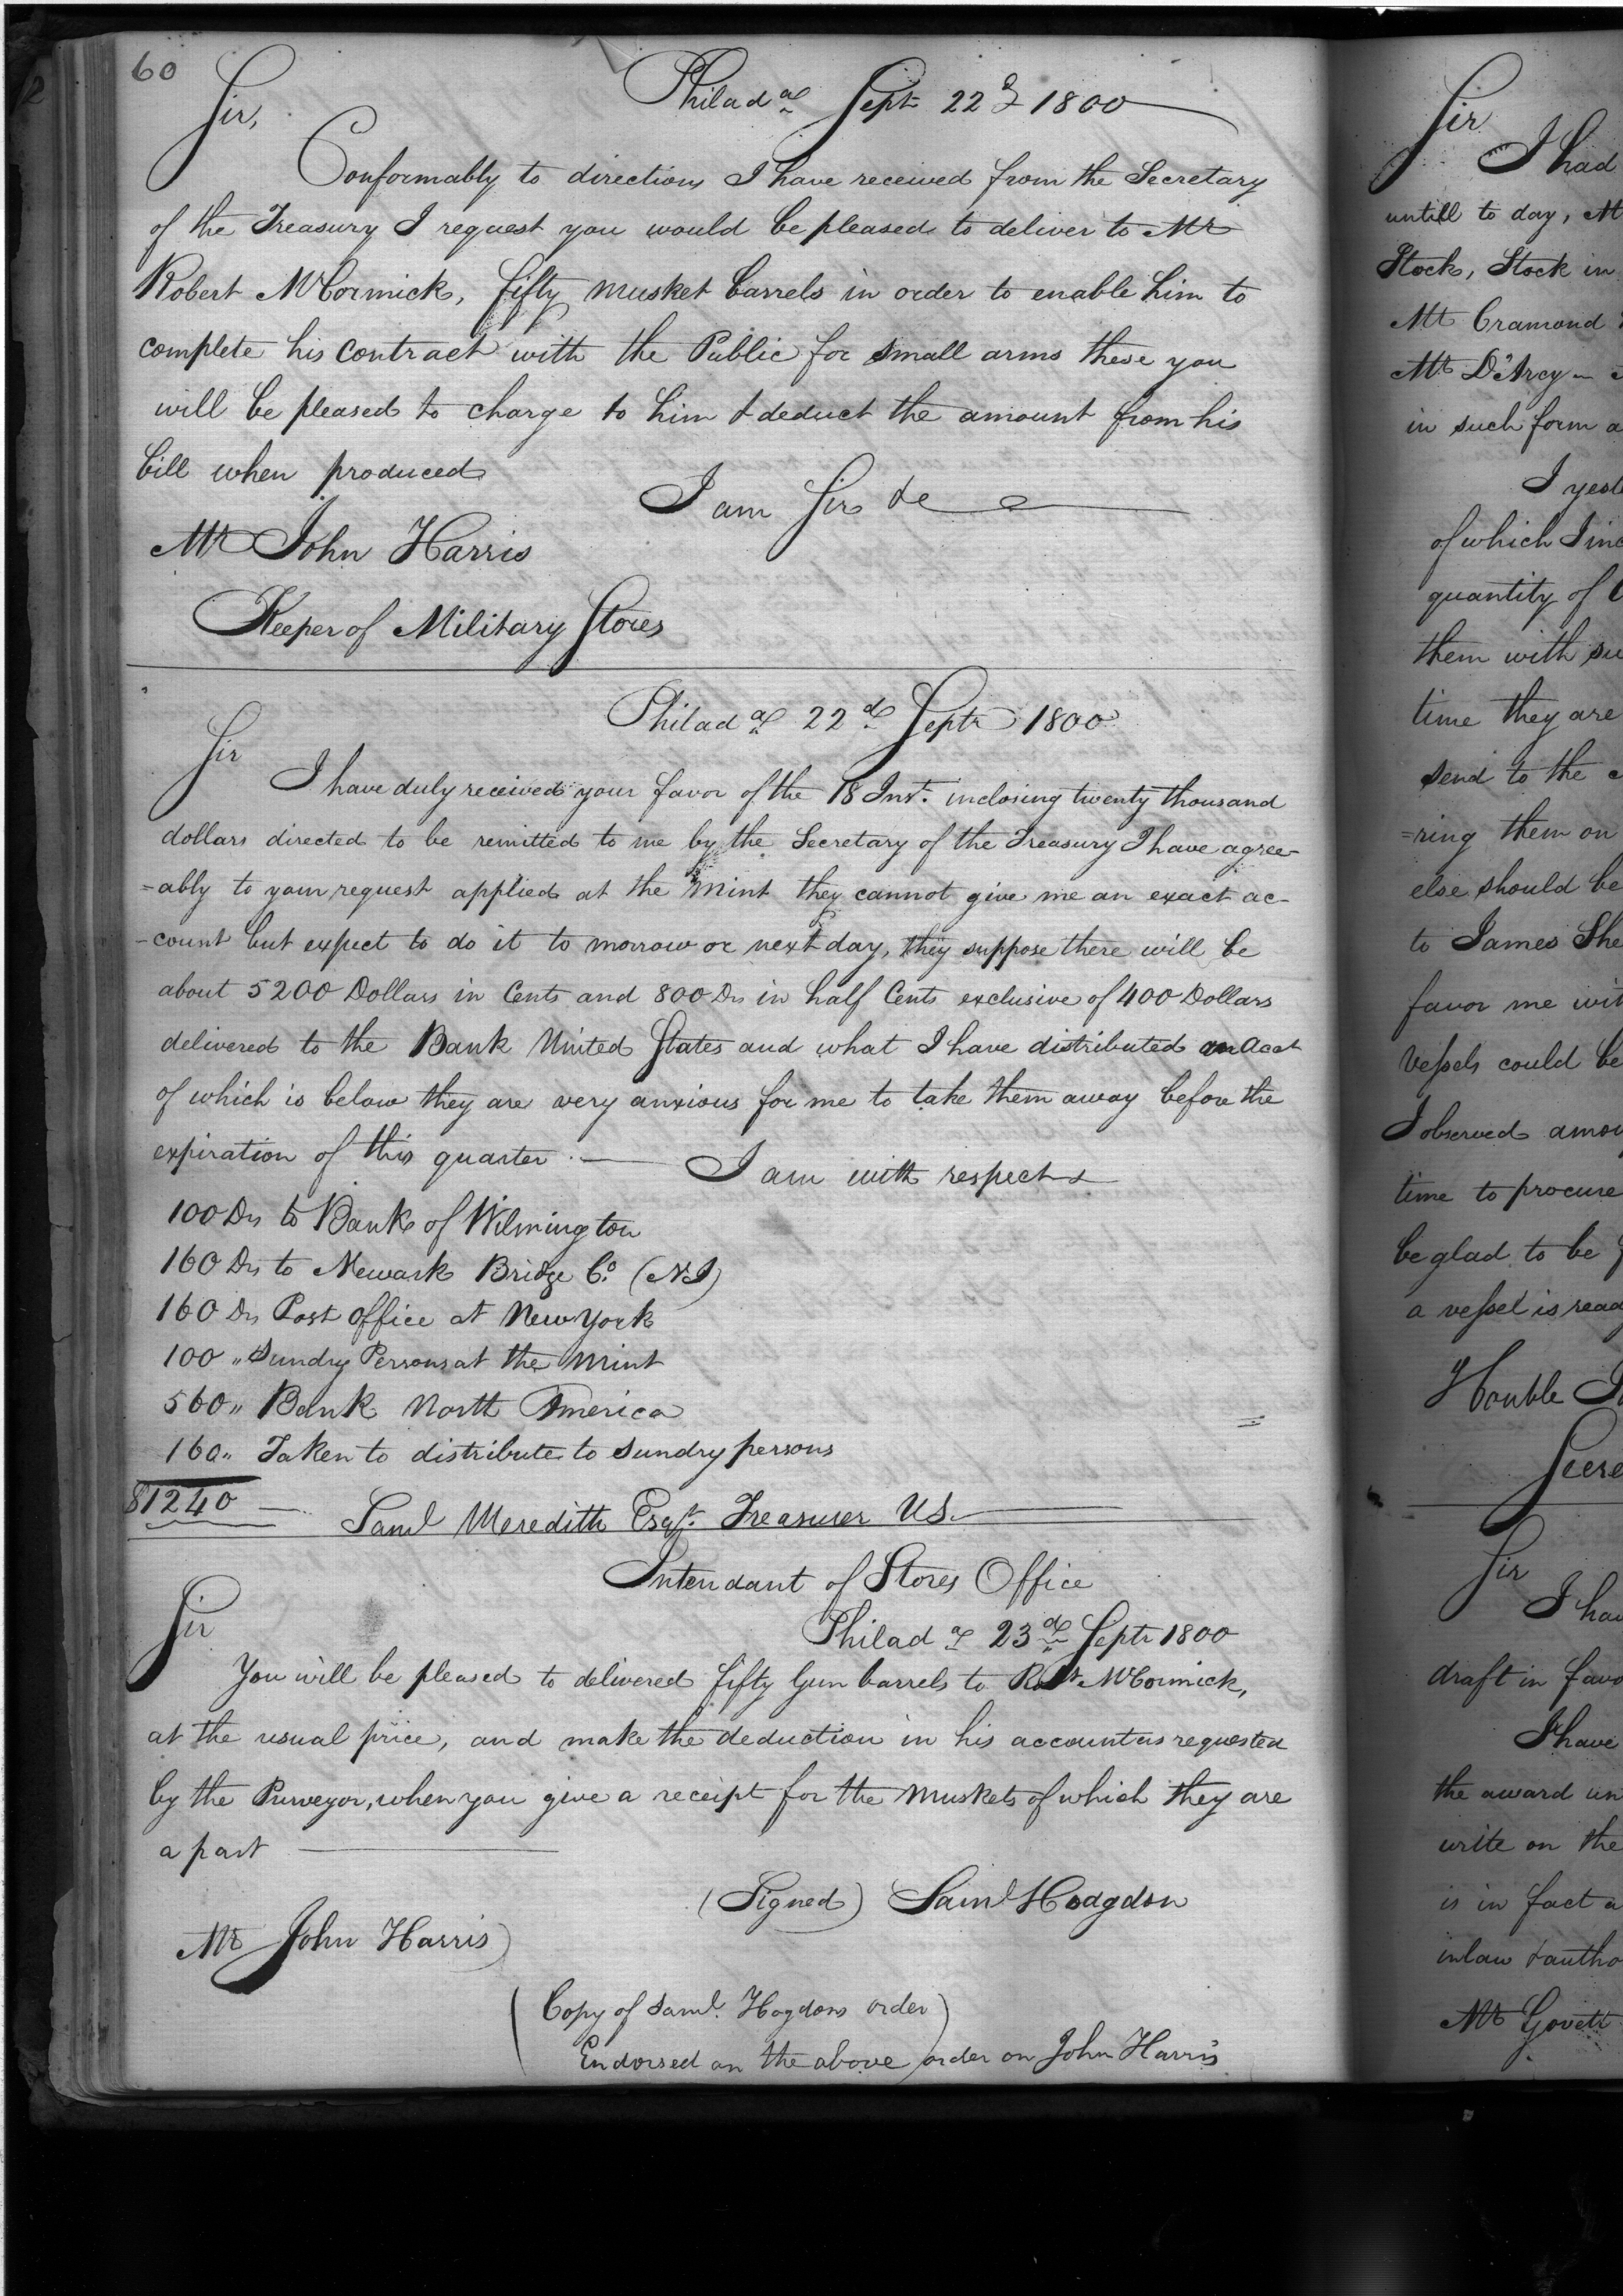 60
Philada Sept 22d 1800
Sir,
Conformably to directions I have received from the Secretary
of the Treasury I request you would be pleased to deliver to Mr
Robert McCormick, fifty musket barrels in order to enable him to
complete his contract with the Public for small arms these you
will be pleased to charge to him & deduct the amount from his
bill when produced
I am Sir &c
Mr John Harris
Keeper of Military Stores
Philada 22d Septr 1800
Sir
I have duly received your favor of the 18 Inst. inclosing twenty thousand
dollars directed to be remitted to me by the Secretary of the Treasury I have agree-
=ably to your request applied at the Mint they cannot give me an exact ac-
-count but expect to do it to morrow or next day, they suppose there will be
about 5200 Dollars in Cents and 800 Drs in half Cents exclusive of 400 Dollars
delivered to the Bank United States and what I have distributed an Acct
of which is below they are very anxious for me to take them away before the
expiration of this quarter.
I am with respect
100 Drs to Bank of Wilmington
160 Drs to Newark Bridge Co. (NJ)
160 Drs Post office at New York
100 " Sundry Persons at the Mint
560 " Bank North America
160 " Taken to distribute to sundry persons
$1240
Saml Meredith Esqr. Treasurer US.
Intendant of Stores Office
Philada 23d Septr 1800
Sir
You will be pleased to delivered fifty Gun barrels to Robt McCormick,
at the usual price, and make the deduction in his account as requested
by the Purveyor, when you give a receipt for the Muskets of which they are
a part
(Signed) Saml Hodgdon
Mr John Harris
(Copy of Saml. Hogdons order)
Endorsed on the above order on John Harris
Sir
I had
untill to day, M
Stock, Stock in
Mr Cramond
Mr D'Arcy
in such form a
I yest
of which I inc
quantity of
them with su
time they are
send to the
=ring them on
else should be
to James She
favor me wit
Vessels could be
I observed amon
time to procure
be glad to be
a vessel is read
Honble
Secre
Sir
I hav
draft in favo
I have
the award un
write on the
is in fact a
in law & autho
Mr Govett